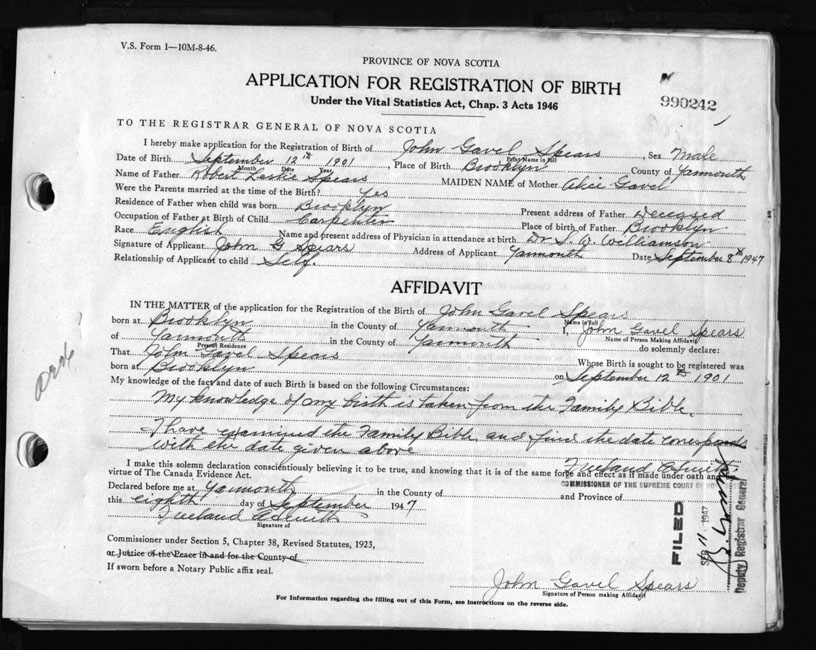 V.S. Form 1—10M-8-46.
PROVINCE OF NOVA SCOTIA
APPLICATION FOR REGISTRATION OF BIRTH
Under the Vital Statistics Act, Chap. 3 Acts 1946
990242
TO THE REGISTRAR GENERAL OF NOVA SCOTIA
I hereby make application for the Registration of Birth of John Gavel Spears, Sex Male
Print Name in full
Date of Birth September 12th 1901, Place of Birth Brooklyn County of Yarmouth
Month Date Year
Name of Father Robert Leslie Spears MAIDEN NAME of Mother Alice Gavel
Were the Parents married at the time of the Birth? Yes
Residence of Father when child was born Brooklyn Present address of Father Deceased
Occupation of Father at Birth of Child Carpenter Place of birth of Father Brooklyn
Race English Name and present address of Physician in attendance at birth Dr S. W. Williamson
Signature of Applicant John G Spears Address of Applicant Yarmouth Date September 8th 1947
Relationship of Applicant to child Self.
AFFIDAVIT
IN THE MATTER of the application for the Registration of the Birth of John Gavel Spears
Name in full
born at Brooklyn in the County of Yarmouth I, John Gavel Spears
Name of Person Making Affidavit
of Yarmouth in the County of Yarmouth do solemnly declare:
Present Residence
That John Gavel Spears Whose Birth is sought to be registered was
born at Brooklyn on September 12th 1901
My knowledge of the fact and date of such Birth is based on the following Circumstances:
My knowledge of my birth is taken from the Family Bible.
I have examined the Family Bible and find the date corresponds
with the date given above
I make this solemn declaration conscientiously believing it to be true, and knowing that it is of the same force and effect as if made under oath and
virtue of The Canada Evidence Act.
COMMISSIONER OF THE SUPREME COURT OF NO
Declared before me at Yarmouth in the County of and Province of
this eighth day of September 1947
Signature of
Commissioner under Section 5, Chapter 38, Revised Statutes, 1923,
or Justice of the Peace in and for the County of
If sworn before a Notary Public affix seal.
FILED
SEP 11 1947
Deputy Registrar General
John Gavel Spears
Signature of Person making Affidavit
For Information regarding the filling out of this Form, see Instructions on the reverse side.